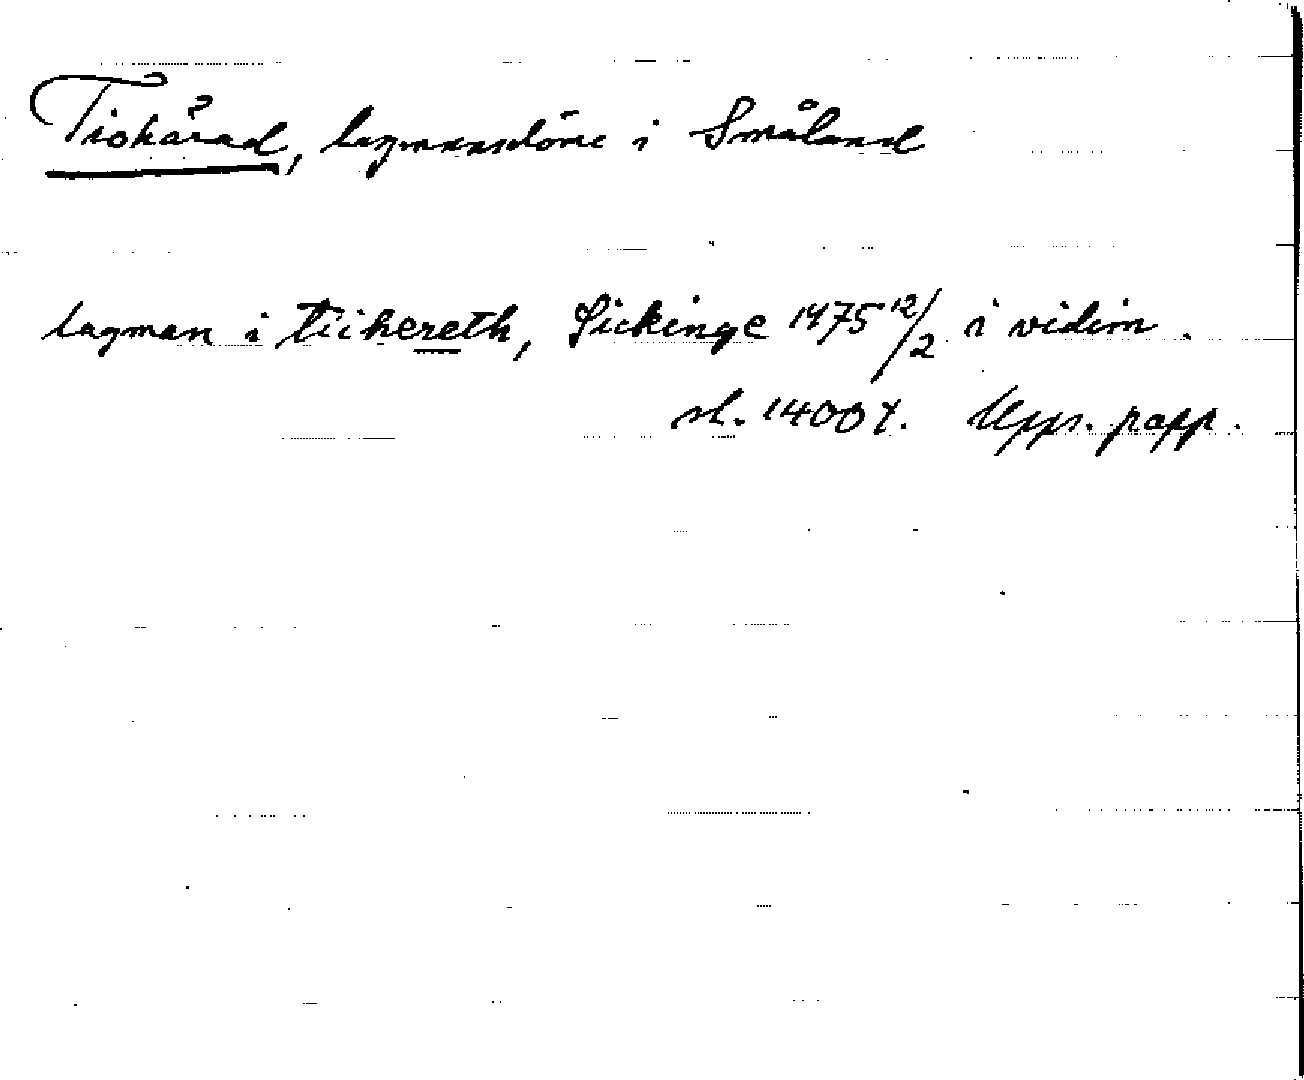 Tiohärad, lagmansdöme i Småland
lagman i tiihereth, Sickinge 1475 12/2 i vidim.
sl. 1400 t. Upps. papp.